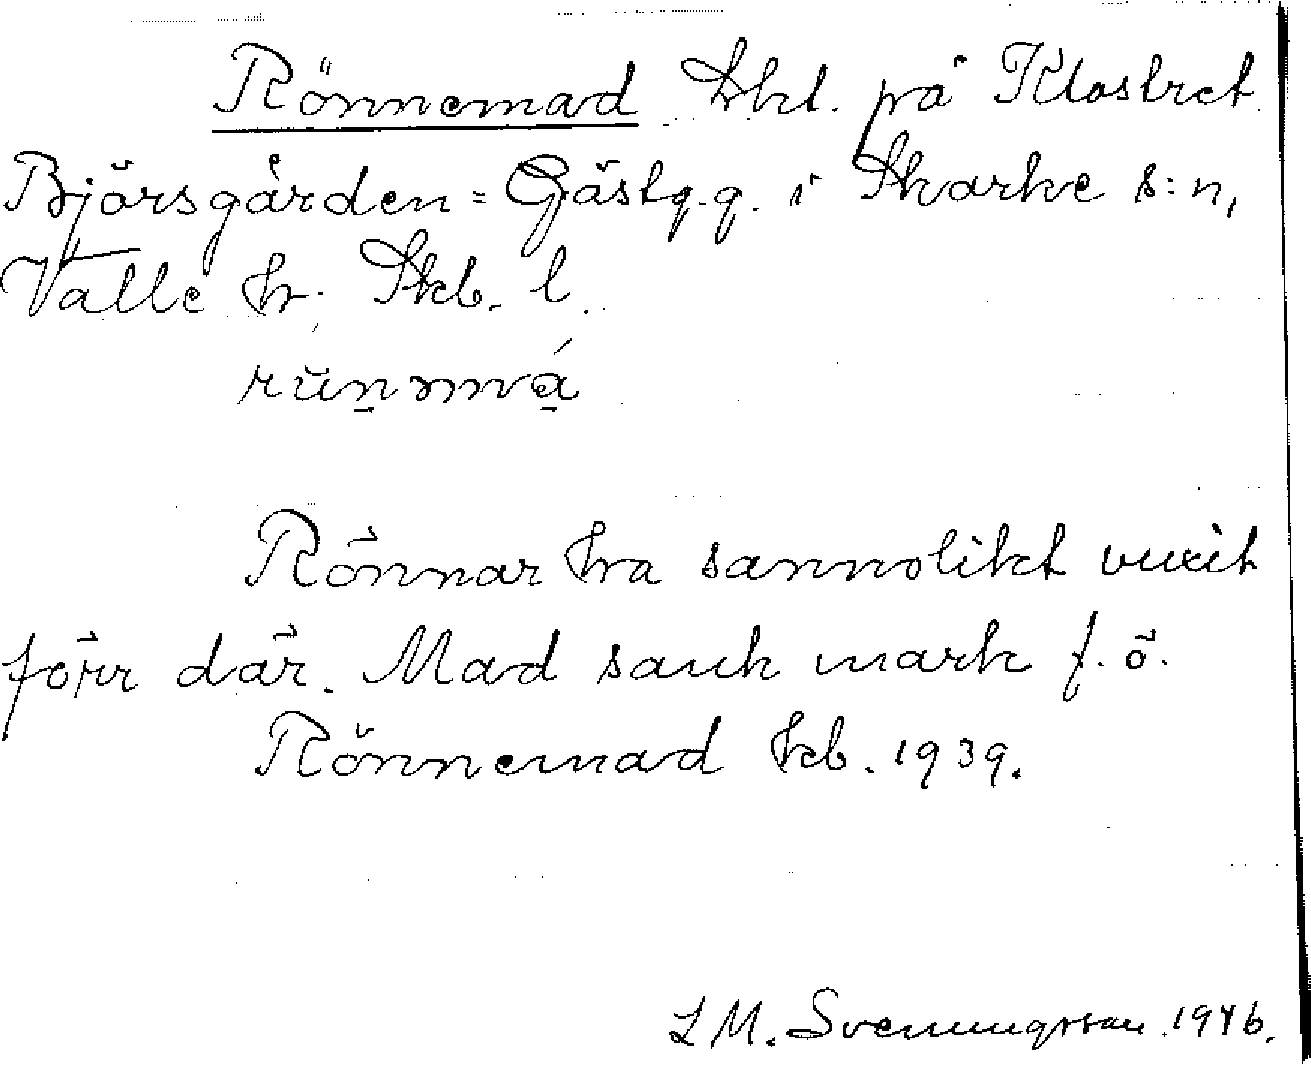 Rönnemad trkt. på Klostret
Björsgården = Gästg.g. i Skarke s:n,
Valle hr; Skb. l.
Rönnar ha sannolikt vuxit
förr där. Mad sank mark f. ö.
Rönnemad kb. 1939.
L M. Svenungsson 1946.